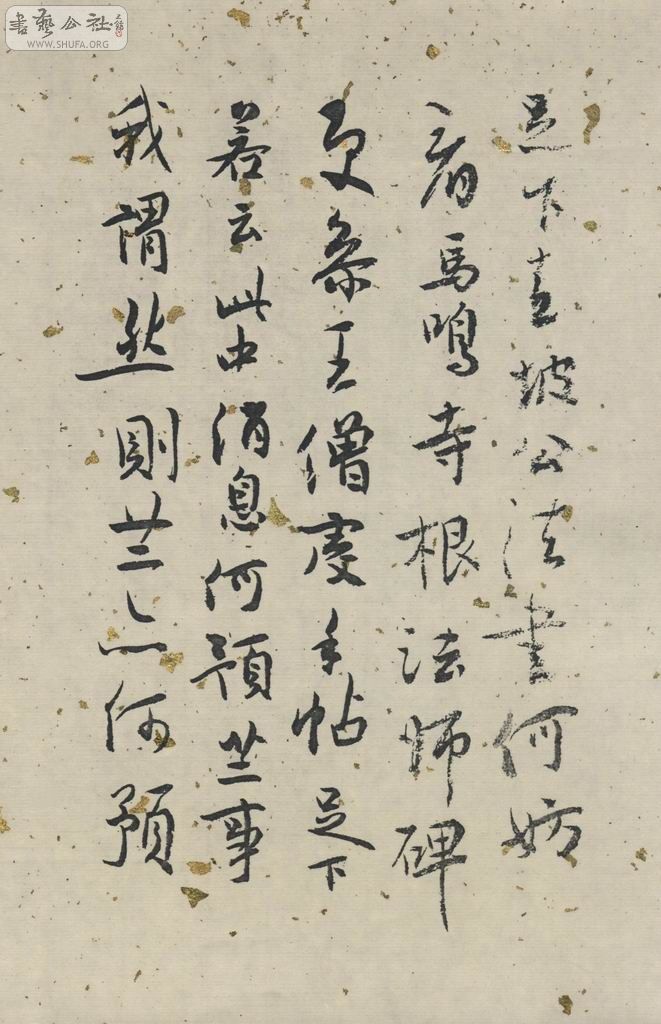 書藝公社
WWW.SHUFA.ORG
足下喜坡公法书何妨
看馬鳴寺根法师碑
更参王僧虔手帖足下
若云此中消息何預世事
我謂然則世亦何預